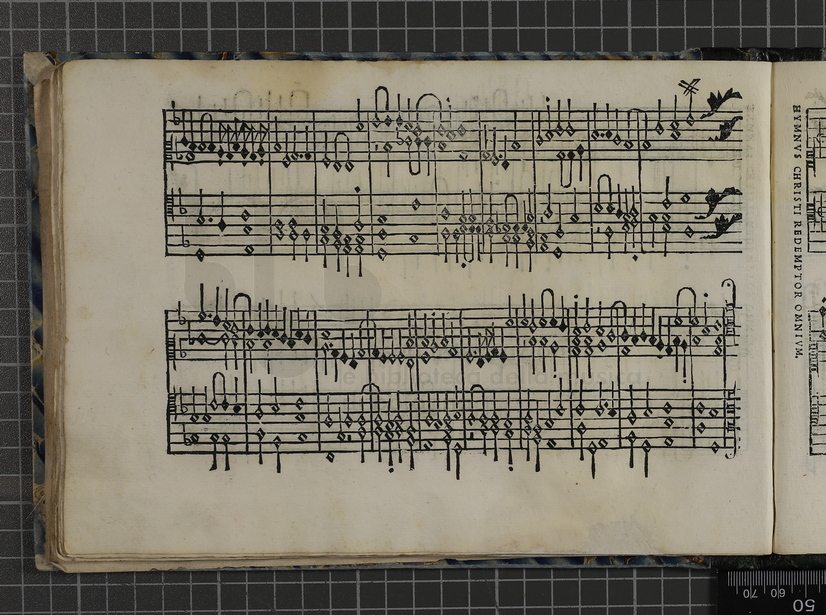 HYMNVS CHRISTI REDEMPTOR OMNIVM.
70 60 50